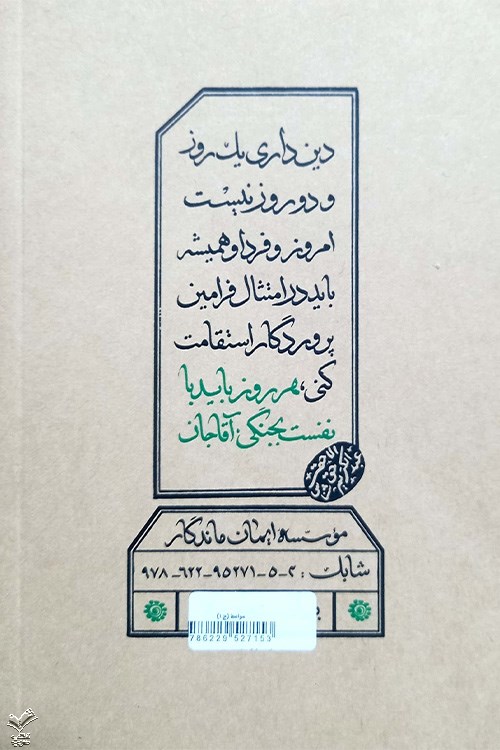 دین داری یک روز
و دو روز نیست
امروز و فردا و همیشه
باید در امتثال فرامین
پروردگار استقامت
کنی، هر روز باید با
نفست بجنگی آقاجان
مؤسسه ایمان ماندگار
شابک: ۲-۵-۹۵۲۷۱-۶۲۲-۹۷۸
مواعظ (ج ۱)
786229 527153